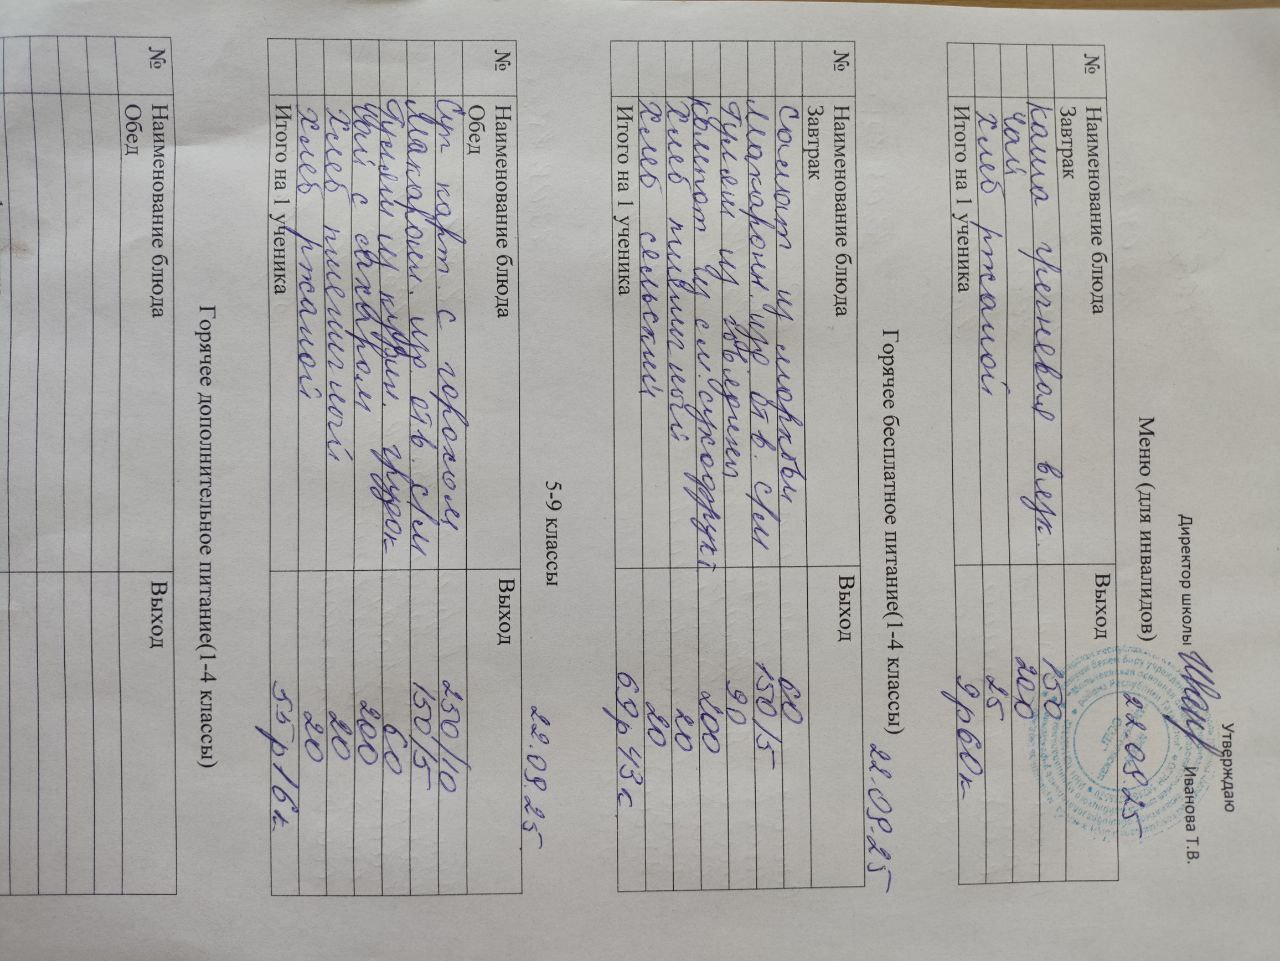 Утверждаю
Директор школы Иванова Т.В.
Меню (для инвалидов) 22.09.25
№ Наименование блюда Выход
Завтрак
Каша гречневая вязк. 150
Чай 200
Хлеб ржаной 25
Итого на 1 ученика 9р60к
Горячее бесплатное питание(1-4 классы) 22.09.25
№ Наименование блюда Выход
Завтрак
Салат из моркови 60
Макарон. изд. отв. с/м 150/5
Гуляш из говядины 90
Компот из см. сухофрукт 200
Хлеб пшеничной 20
Хлеб сельский 20
Итого на 1 ученика 69р43к
5-9 классы 22.09.25
№ Наименование блюда Выход
Обед
Суп карт. с горохом 250/10
Макарон. изд отв. с/м 150/5
Гуляш из курин. грудок 60
Чай с сахаром 200
Хлеб пшеничной 20
Хлеб ржаной 20
Итого на 1 ученика 55р16к
Горячее дополнительное питание(1-4 классы)
№ Наименование блюда Выход
Обед